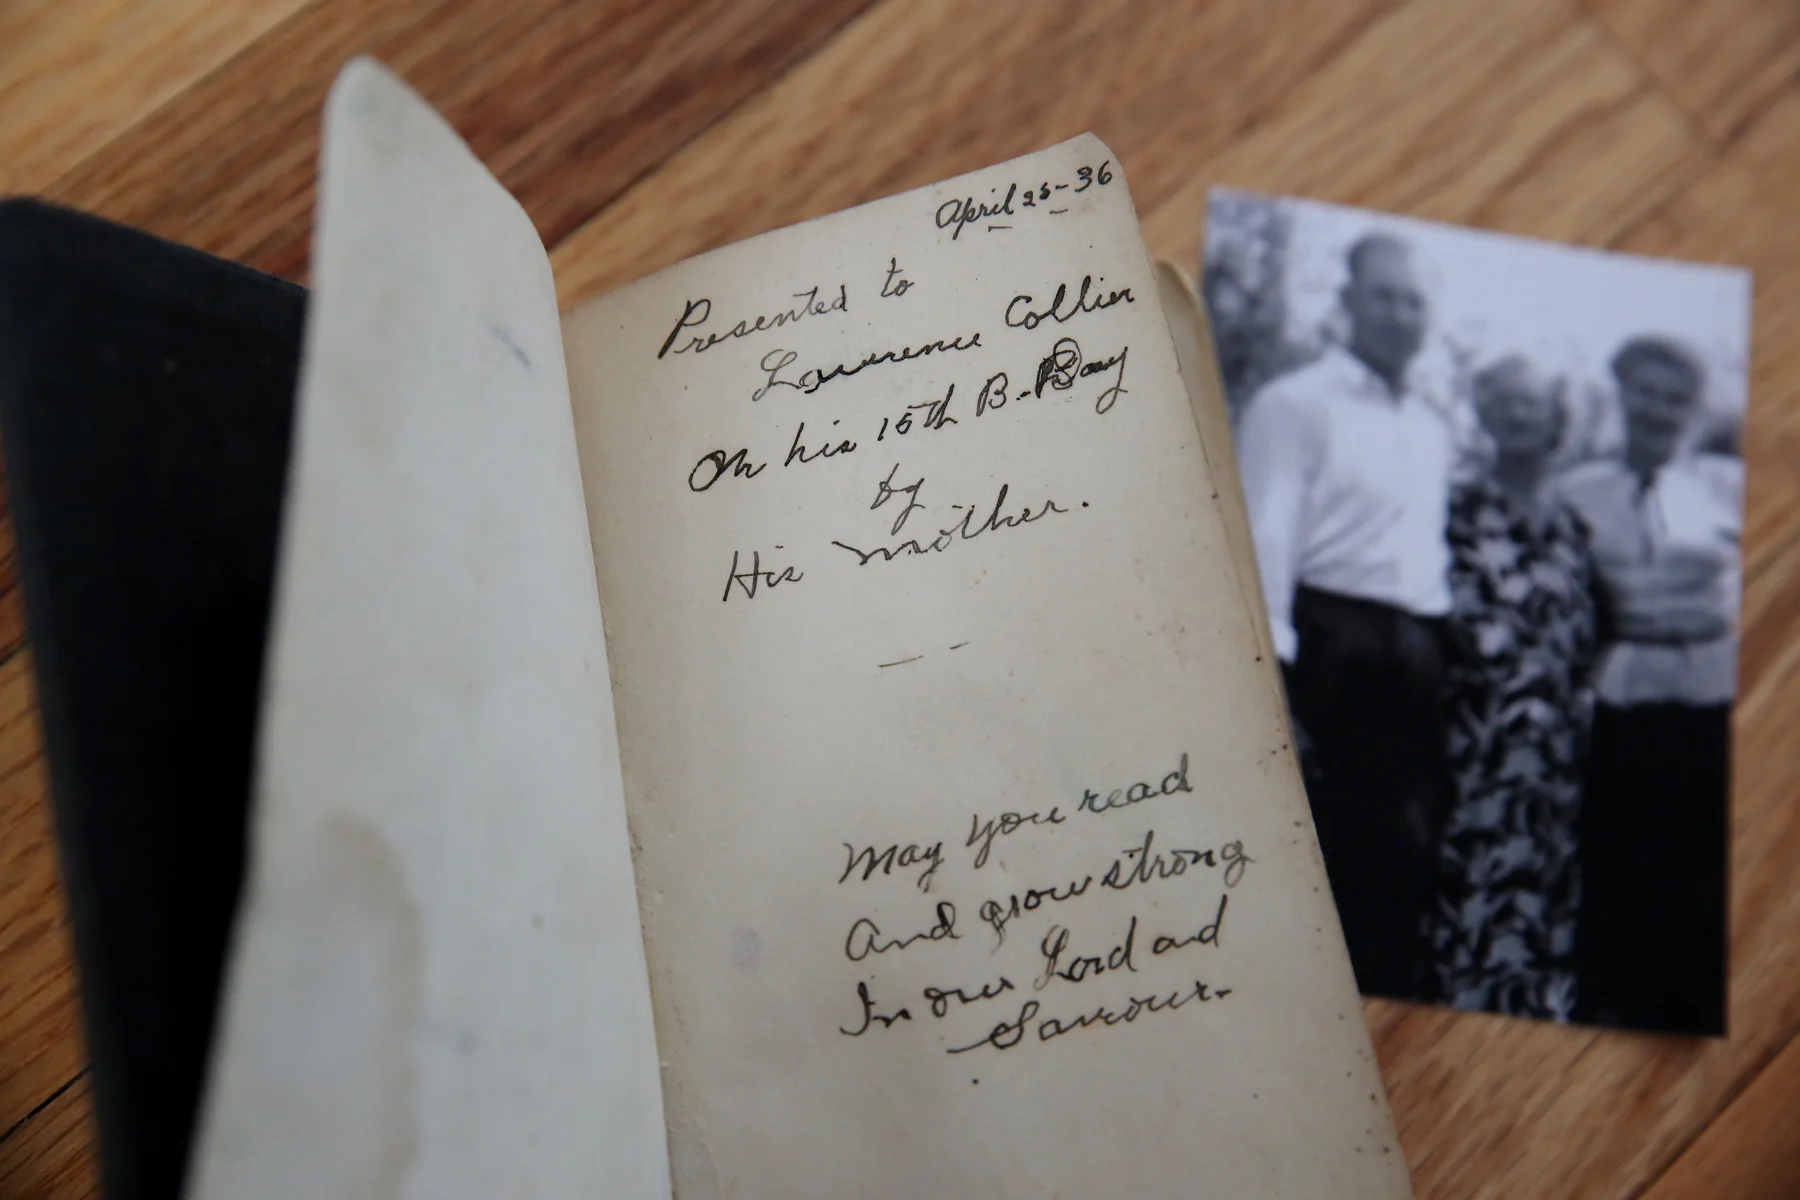 April 25-36
Presented to
Lawrence Collier
On his 15th B-Day
by
His mother.
May you read
And grow strong
In our Lord and
Saviour-